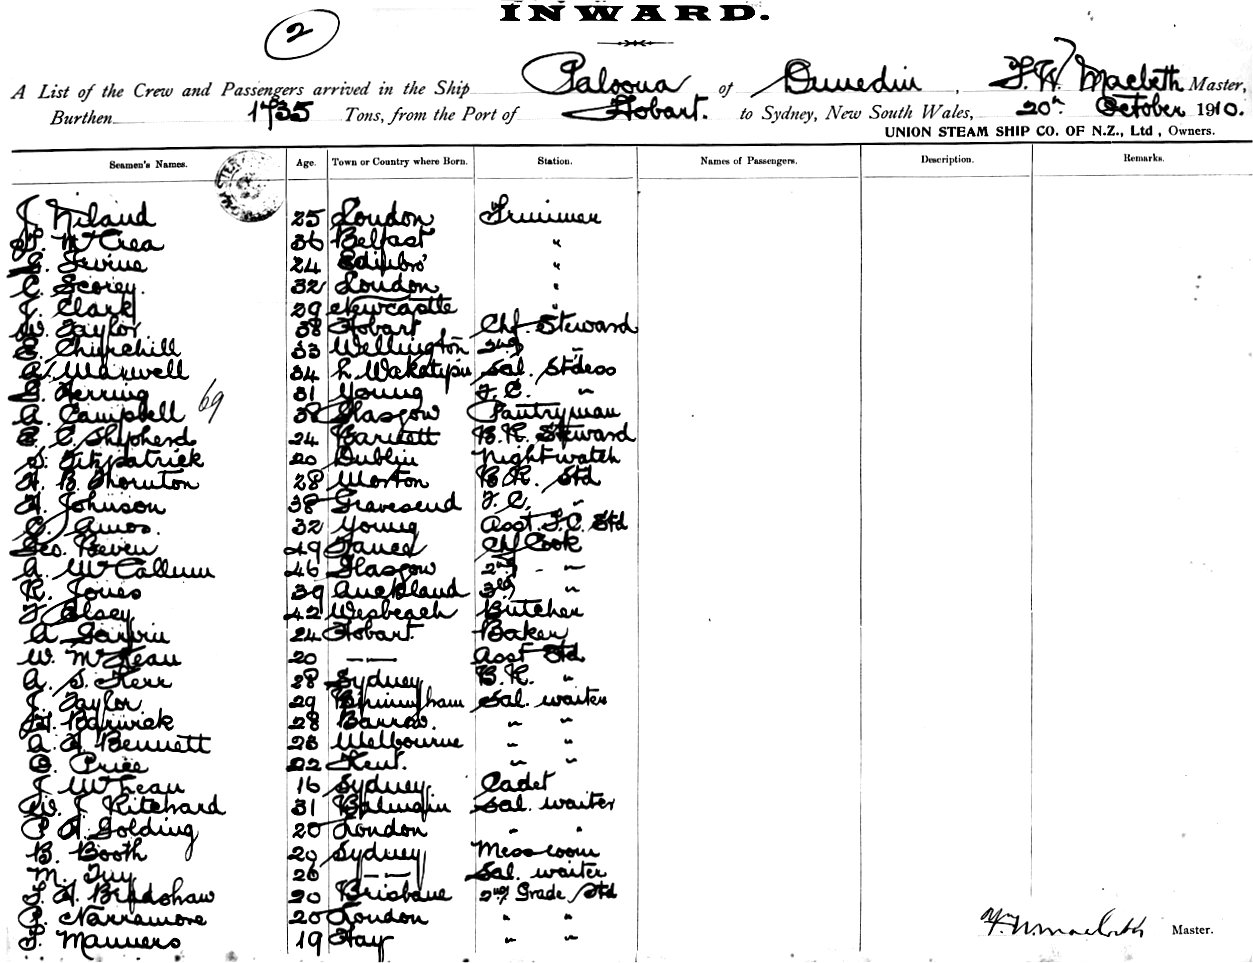 INWARD.
2
A List of the Crew and Passengers arrived in the Ship Paloona of Dunedin, T. W. Macbeth Master,
Burthen 1735 Tons, from the Port of Hobart. to Sydney, New South Wales, 20th October 1910.
UNION STEAM SHIP CO. OF N.Z., Ltd, Owners.
Seamen's Names. Age. Town or Country where Born. Station. Names of Passengers. Description. Remarks.
J. Niland 25 London Trimmer
McCrea 36 Belfast "
Irvine 24 Edinbro' "
C. Scorey. 32 London "
J. Clark 29 Newcastle "
W. Taylor 38 Hobart Chf. Steward
Churchill 33 Wellington 2nd "
A. Maxwell 34 L. Wakatipu Sal. Stdess
Herring 31 Young F. C. "
69
A. Campbell 38 Glasgow Pantryman
C. Shepherd 24 B. R. Steward
S. Fitzpatrick 20 Dublin Nightwatch
H. B. Thornton 28 Morton B. R. Std
H. Johnson 38 Gravesend F. C. "
C. Amos. 32 Young Asst. F. C. Std
Geo. Beven 49 Chf Cook
A. McCallum 46 Glasgow 2nd - "
R. Jones 39 Auckland 3rd "
Elsey 42 Wesbeach Butcher
A. 24 Hobart. Baker
W. McLean 20 —"— Asst Std.
A. S. Kerr 28 Sydney B. R. "
J. Taylor 29 Birmingham Sal. waiter
Barwick 28 Barrow. " "
A. H. Bennett 23 Melbourne " "
Price 22 Kent. " "
J. McLean 16 Sydney Cadet
W. J. Pritchard 31 Balmain Sal. waiter
P. H. Golding 20 London " "
B. Booth 29 Sydney Messroom
M. Tuy 26 —"— Sal. waiter
H. Bradshaw 20 Brisbane 2nd Grade Std
P. Narramore 20 London " "
Manners 19 Hay " "
T. W. Macbeth Master.